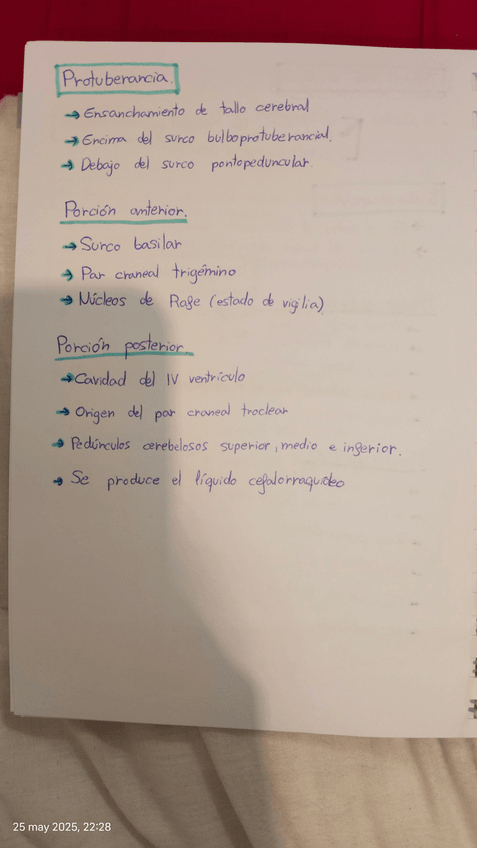 Protuberancia.
→ Ensanchamiento de tallo cerebral
→ Encima del surco bulboprotuberancial.
→ Debajo del surco pontopeduncular.
Porción anterior.
→ Surco basilar
→ Par craneal trigémino
→ Núcleos de Rafe (estado de vigilia)
Porción posterior
→ Cavidad del IV ventrículo
→ Origen del par craneal troclear
→ Pedúnculos cerebelosos superior, medio e inferior.
→ Se produce el líquido cefalorraquídeo
25 may 2025, 22:28